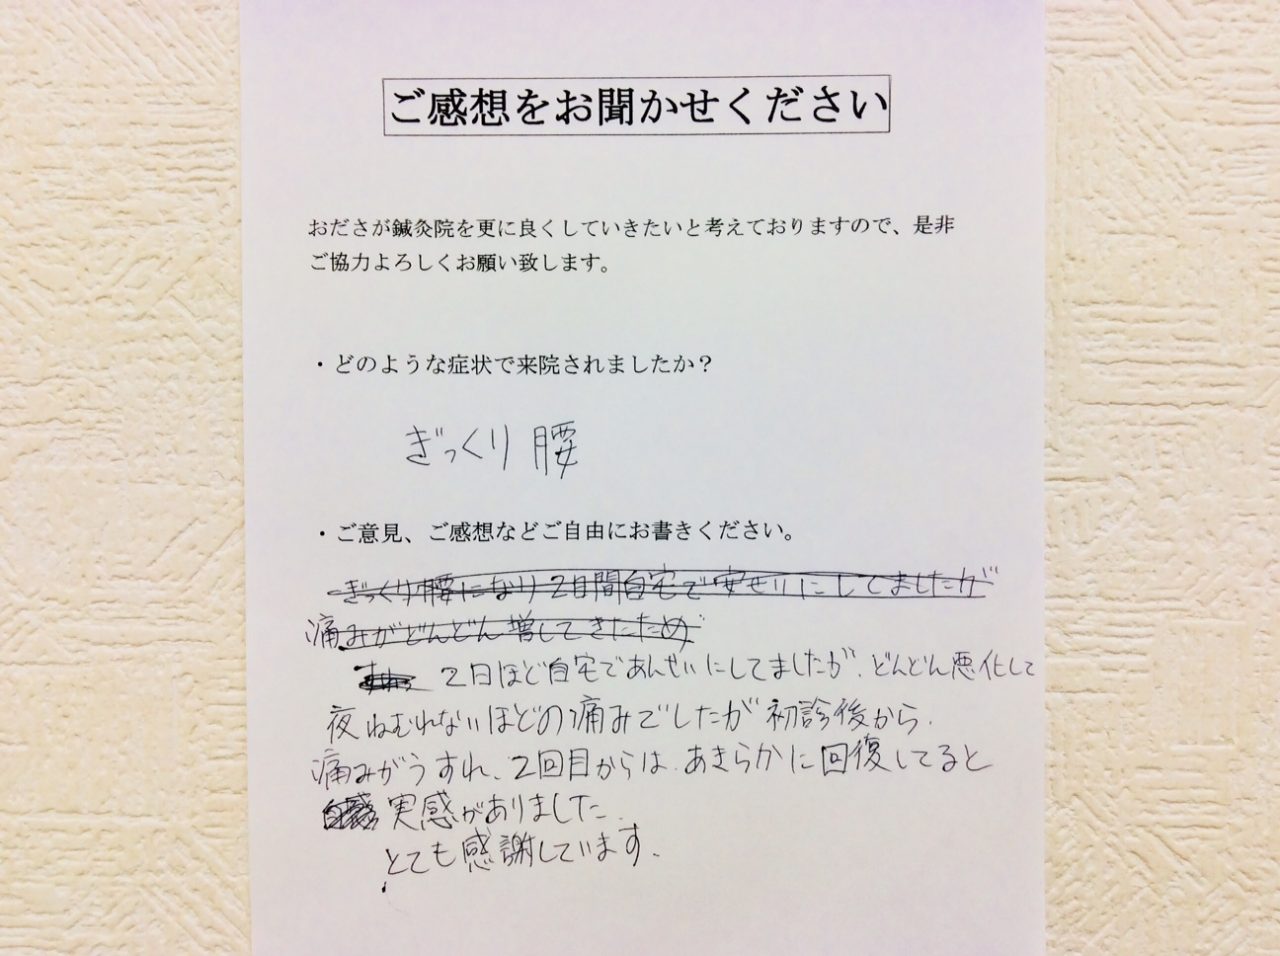 ご感想をお聞かせください
おださが鍼灸院を更に良くしていきたいと考えておりますので、是非
ご協力よろしくお願い致します。
・どのような症状で来院されましたか？
ぎっくり腰
・ご意見、ご感想などご自由にお書きください。
ぎっくり腰になり2日間自宅で安せいにしてましたが
痛みがどんどん増してきたため
2日ほど自宅であんせいにしてましたが、どんどん悪化して
夜ねむれないほどの痛みでしたが初診後から、
痛みがうすれ、2回目からは、あきらかに回復してると
実感がありました、
とても感謝しています。